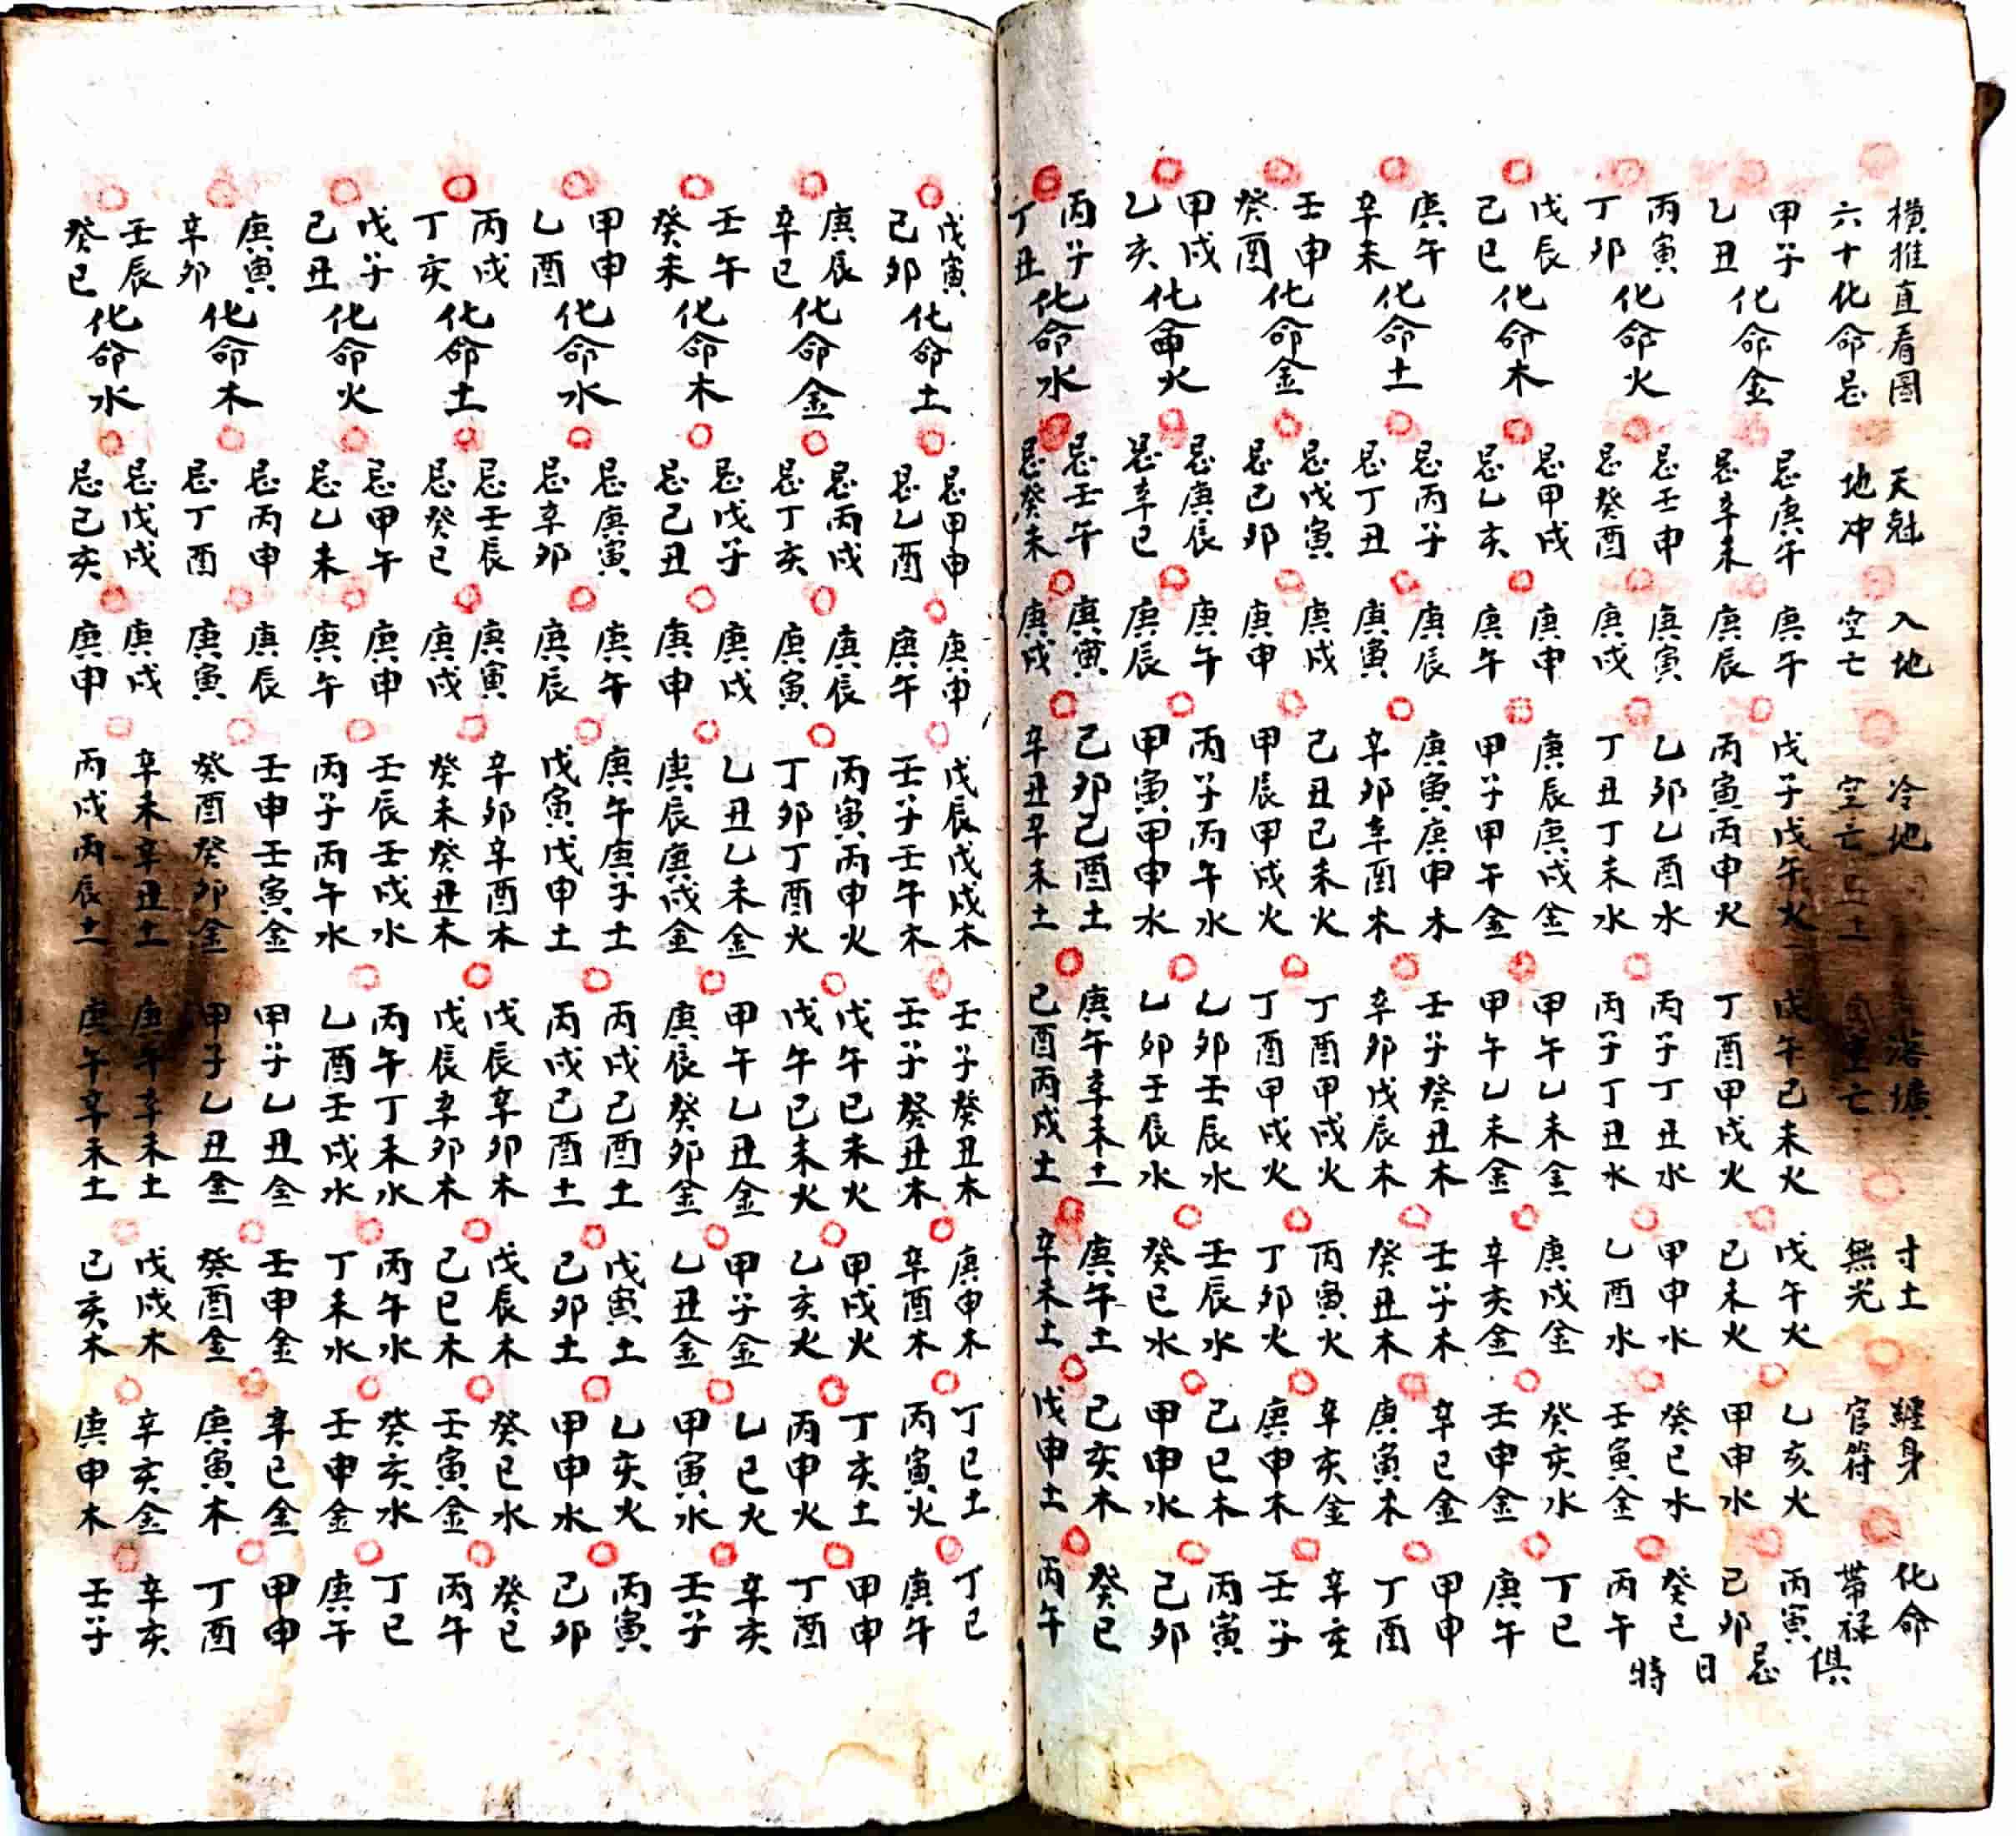 橫推直看圖 天尅 入地 冷地 落壙 寸土 纏身 化命
六十化命忌 地冲 空亡 空亡 空亡 無光 官符 帶祿
俱忌日時
甲子 化命金 忌庚午 庚午 戊子戊午火 戊午己未火 戊午火 乙亥火 丙寅
乙丑 忌辛未 庚辰 丙寅丙申火 丁酉甲戌火 己未火 甲申水 己卯
丙寅 化命火 忌壬申 庚寅 乙卯乙酉水 丙子丁丑水 甲申水 癸巳水 癸巳
丁卯 忌癸酉 庚戌 丁丑丁未水 丙子丁丑水 乙酉水 壬寅金 丙午
戊辰 化命木 忌甲戌 庚申 庚辰庚戌金 甲午乙未金 庚戌金 癸亥水 丁巳
己巳 忌乙亥 庚午 甲子甲午金 甲午乙未金 辛亥金 壬申金 庚午
庚午 化命土 忌丙子 庚辰 庚寅庚申木 壬子癸丑木 壬子木 辛巳金 甲申
辛未 忌丁丑 庚寅 辛卯辛酉木 辛卯戊辰木 癸丑木 庚寅木 丁酉
壬申 化命金 忌戊寅 庚戌 己丑己未火 丁酉甲戌火 丙寅火 辛亥金 辛亥
癸酉 忌己卯 庚申 甲辰甲戌火 丁酉甲戌火 丁卯火 庚申木 壬子
甲戌 化命火 忌庚辰 庚午 丙子丙午水 乙卯壬辰水 壬辰水 己巳木 丙寅
乙亥 忌辛巳 庚辰 甲寅甲申水 乙卯壬辰水 癸巳水 甲申水 己卯
丙子 化命水 忌壬午 庚寅 己卯己酉土 庚午辛未土 庚午土 己亥木 癸巳
丁丑 忌癸未 庚戌 辛丑辛未土 己酉丙戌土 辛未土 戊申土 丙午
戊寅 化命土 忌甲申 庚申 戊辰戊戌木 壬子癸丑木 庚申木 丁巳土 丁巳
己卯 忌乙酉 庚午 壬子壬午木 壬子癸丑木 辛酉木 丙寅火 庚午
庚辰 化命金 忌丙戌 庚辰 丙寅丙申火 戊午己未火 甲戌火 丁亥土 甲申
辛巳 忌丁亥 庚寅 丁卯丁酉火 戊午己未火 乙亥火 丙申火 丁酉
壬午 化命木 忌戊子 庚戌 乙丑乙未金 甲午乙丑金 甲子金 乙巳火 辛亥
癸未 忌己丑 庚申 庚辰庚戌金 庚辰癸卯金 乙丑金 甲寅水 壬子
甲申 化命水 忌庚寅 庚午 庚午庚子土 丙戌己酉土 戊寅土 乙亥火 丙寅
乙酉 忌辛卯 庚辰 戊寅戊申土 丙戌己酉土 己卯土 甲申水 己卯
丙戌 化命土 忌壬辰 庚寅 辛卯辛酉木 戊辰辛卯木 戊辰木 癸巳水 癸巳
丁亥 忌癸巳 庚戌 癸未癸丑木 戊辰辛卯木 己巳木 壬寅金 丙午
戊子 化命火 忌甲午 庚申 壬辰壬戌水 丙午丁未水 丙午水 癸亥水 丁巳
己丑 忌乙未 庚午 丙子丙午水 乙酉壬戌水 丁未水 壬申金 庚午
庚寅 化命木 忌丙申 庚辰 壬申壬寅金 甲子乙丑金 壬申金 辛巳金 甲申
辛卯 忌丁酉 庚寅 癸酉癸卯金 甲子乙丑金 癸酉金 庚寅木 丁酉
壬辰 化命水 忌戊戌 庚戌 辛未辛丑土 庚午辛未土 戊戌木 辛亥金 辛亥
癸巳 忌己亥 庚申 丙戌丙辰土 庚午辛未土 己亥木 庚申木 壬子